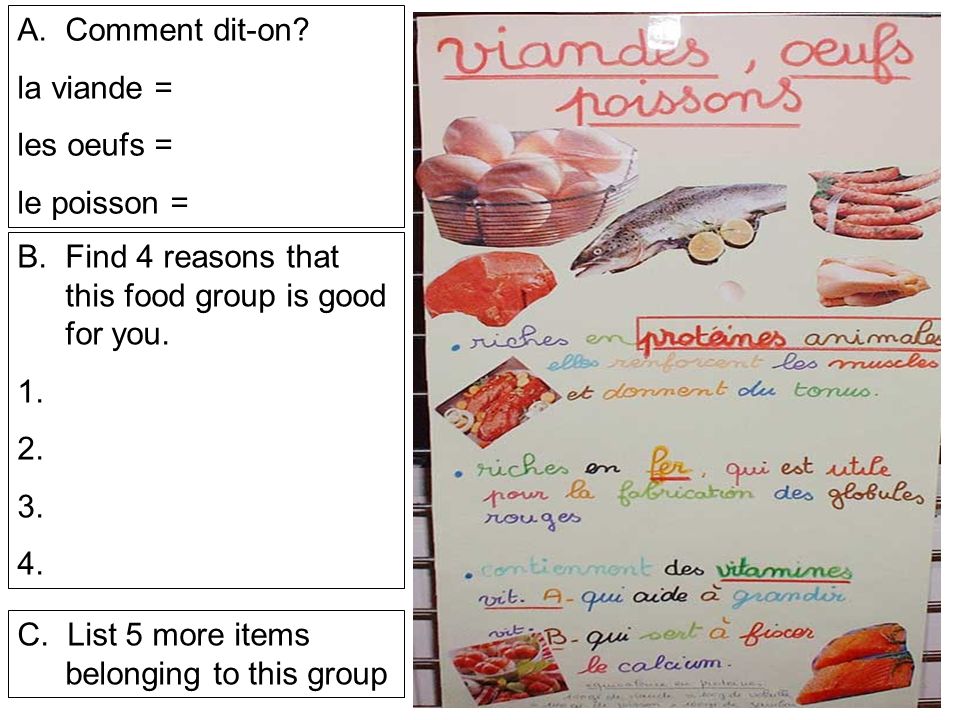 A. Comment dit-on?
la viande =
les oeufs =
le poisson =
B. Find 4 reasons that
this food group is good
for you.
1.
2.
3.
4.
C. List 5 more items
belonging to this group
viandes, oeufs
poissons
• riches en protéines animales
elles renforcent les muscles
et donnent du tonus.
• riches en fer, qui est utile
pour la fabrication des globules
rouges
• contiennent des vitamines
vit. A - qui aide à grandir
vit. B - qui sert à fixer
le calcium.
equivalence en protéines